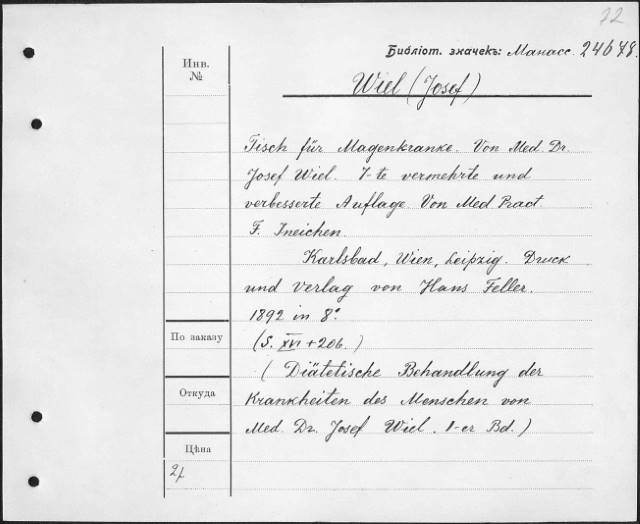 72
Библіот. значекъ: Манасс. 24678.
Инв.
№
Wiel (Josef)
Tisch für Magenkranke. Von Med. Dr.
Josef Wiel. 7-te vermehrte und
verbesserte Auflage. Von Med Pract
F. Ineichen.
Karlsbad, Wien, Leipzig. Druck
und Verlag von Hans Feller.
1892 in 8°
По заказу
(S. XVI + 206.)
(Diätetische Behandlung der
Откуда
Krankheiten des Menschen von
Med. Dr. Josef Wiel. 1-er Bd.)
Цѣна